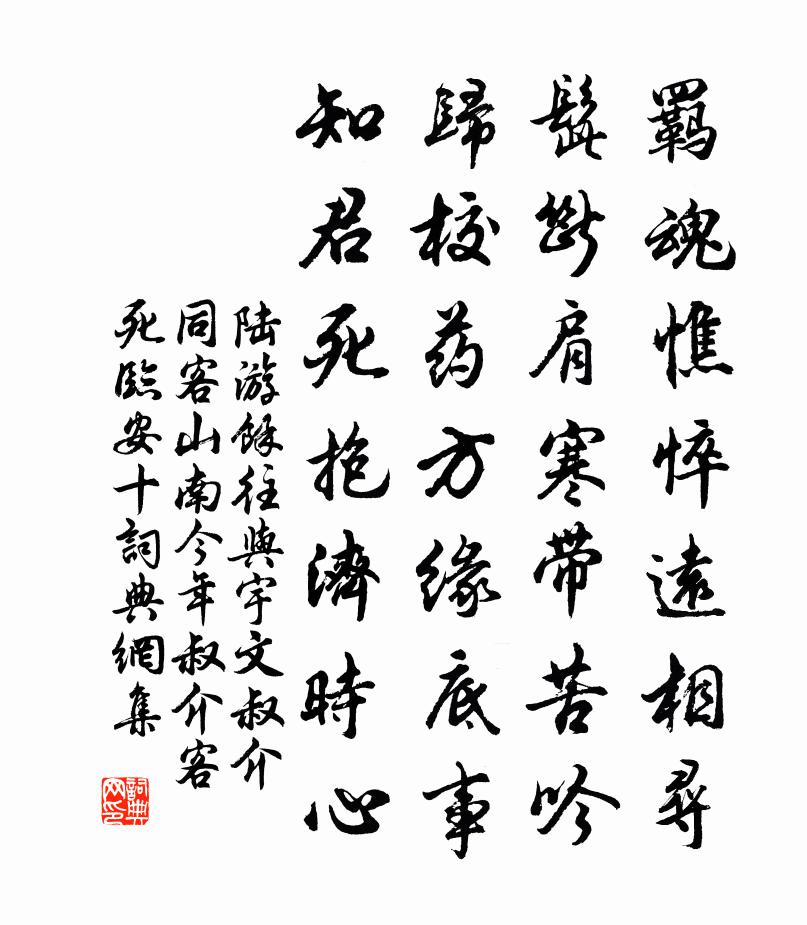 羈魂憔悴遠相尋
髭斷肩寒帶苦吟
歸校药方緣底事
知君死抱濟時心
陆游餘往與宇文叔介
同客山南今年叔介客
死臨安十詞典網集
詞典
网印